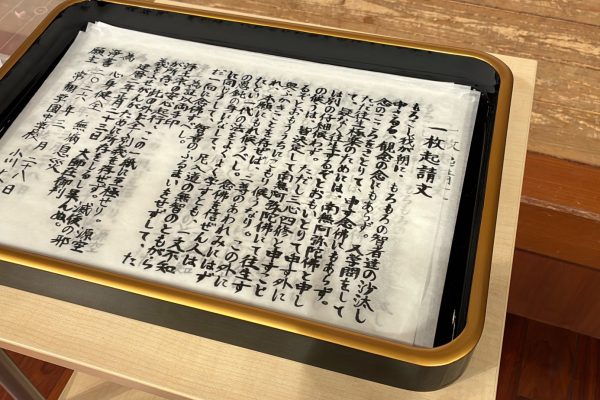 一枚起請文
もろこし我朝に、もろもろの智者達の沙汰し
申さるる観念の念にもあらず。又学問をして
念のこころをさとりて申す念佛にもあらず。
ただ往生極楽のためには、南無阿弥陀佛と申し
て、うたがいなく往生するぞと思いとりて申す外に
は別の仔細候わず。ただし三心四修と申すこと
の候は、皆決定して南無阿弥陀佛にて往生す
るぞと思ううちにこもり候なり。この外に
奥ふかきことを存ぜば、二尊のあわれみにはず
れ、本願にもれ候べし。念佛を信ぜん人は、
たとい一代の法をよくよく学すとも、一文不知
の愚鈍の身になして、尼入道の無智のともがら
に同じうして、智者のふるまいをせずして、た
だ一向に念佛すべし。
浄土宗の安心起行この一紙に至極せり。源空
が所存、この外に全く別義を存ぜず、滅後の邪
大師在御判
無病息災